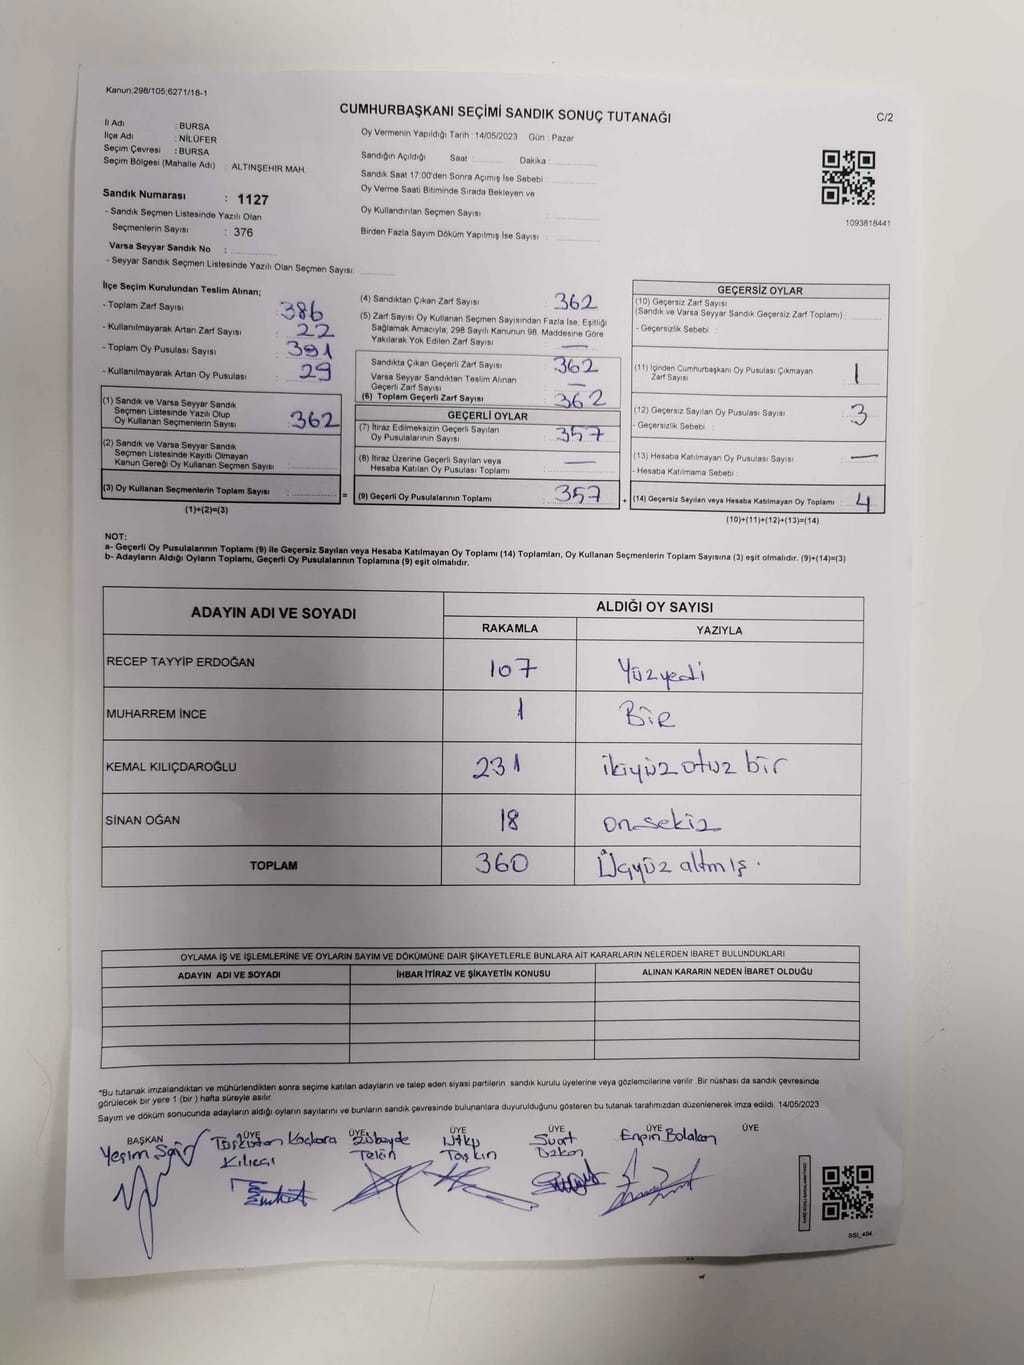 Kanun;298/105,6271/18-1
CUMHURBAŞKANI SEÇİMİ SANDIK SONUÇ TUTANAĞI
C/2
İl Adı : BURSA
İlçe Adı : NİLÜFER
Seçim Çevresi : BURSA
Seçim Bölgesi (Mahalle Adı) : ALTINŞEHİR MAH.
Sandık Numarası : 1127
- Sandık Seçmen Listesinde Yazılı Olan
Seçmenlerin Sayısı : 376
Varsa Seyyar Sandık No :
- Seyyar Sandık Seçmen Listesinde Yazılı Olan Seçmen Sayısı:
Oy Vermenin Yapıldığı Tarih : 14/05/2023 Gün : Pazar
Sandığın Açıldığı Saat : Dakika :
Sandık Saat 17:00'den Sonra Açımış İse Sebebi :
Oy Verme Saati Bitiminde Sırada Bekleyen ve
Oy Kullandırılan Seçmen Sayısı :
Birden Fazla Sayım Döküm Yapılmış İse Sayısı :
1093818441
İlçe Seçim Kurulundan Teslim Alınan;
- Toplam Zarf Sayısı : 386
- Kullanılmayarak Artan Zarf Sayısı : 22
- Toplam Oy Pusulası Sayısı : 391
- Kullanılmayarak Artan Oy Pusulası : 29
(1) Sandık ve Varsa Seyyar Sandık
Seçmen Listesinde Yazılı Olup
Oy Kullanan Seçmenlerin Sayısı : 362
(2) Sandık ve Varsa Seyyar Sandık
Seçmen Listesinde Kayıtlı Olmayan
Kanun Gereği Oy Kullanan Seçmen Sayısı :
(3) Oy Kullanan Seçmenlerin Toplam Sayısı :
(1)+(2)=(3)
=
(4) Sandıktan Çıkan Zarf Sayısı : 362
(5) Zarf Sayısı Oy Kullanan Seçmen Sayısından Fazla İse, Eşitliği
Sağlamak Amacıyla; 298 Sayılı Kanunun 98. Maddesine Göre
Yakılarak Yok Edilen Zarf Sayısı : —
Sandıkta Çıkan Geçerli Zarf Sayısı : 362
Varsa Seyyar Sandıktan Teslim Alınan
Geçerli Zarf Sayısı : —
(6) Toplam Geçerli Zarf Sayısı : 362
GEÇERLİ OYLAR
(7) İtiraz Edilmeksizin Geçerli Sayılan
Oy Pusulalarının Sayısı : 357
(8) İtiraz Üzerine Geçerli Sayılan veya
Hesaba Katılan Oy Pusulası Toplamı : —
(9) Geçerli Oy Pusulalarının Toplamı : 357
+
GEÇERSİZ OYLAR
(10) Geçersiz Zarf Sayısı
(Sandık ve Varsa Seyyar Sandık Geçersiz Zarf Toplamı) :
- Geçersizlik Sebebi :
(11) İçinden Cumhurbaşkanı Oy Pusulası Çıkmayan
Zarf Sayısı : 1
(12) Geçersiz Sayılan Oy Pusulası Sayısı : 3
- Geçersizlik Sebebi :
(13) Hesaba Katılmayan Oy Pusulası Sayısı : —
- Hesaba Katılmama Sebebi :
(14) Geçersiz Sayılan veya Hesaba Katılmayan Oy Toplamı : 4
(10)+(11)+(12)+(13)=(14)
NOT:
a- Geçerli Oy Pusulalarının Toplamı (9) ile Geçersiz Sayılan veya Hesaba Katılmayan Oy Toplamı (14) Toplamları, Oy Kullanan Seçmenlerin Toplam Sayısına (3) eşit olmalıdır. (9)+(14)=(3)
b- Adayların Aldığı Oyların Toplamı, Geçerli Oy Pusulalarının Toplamına (9) eşit olmalıdır.
ADAYIN ADI VE SOYADI
ALDIĞI OY SAYISI
RAKAMLA YAZIYLA
RECEP TAYYİP ERDOĞAN 107 Yüzyedi
MUHARREM İNCE 1 BİR
KEMAL KILIÇDAROĞLU 231 ikiyüz otuz bir
SİNAN OĞAN 18 onsekiz
TOPLAM 360 Üçyüz altmış.
OYLAMA İŞ VE İŞLEMLERİNE VE OYLARIN SAYIM VE DÖKÜMÜNE DAİR ŞİKAYETLERLE BUNLARA AİT KARARLARIN NELERDEN İBARET BULUNDUKLARI
ADAYIN ADI VE SOYADI İHBAR İTİRAZ VE ŞİKAYETİN KONUSU ALINAN KARARIN NEDEN İBARET OLDUĞU
*Bu tutanak imzalandıktan ve mühürlendikten sonra seçime katılan adayların ve talep eden siyasi partilerin sandık kurulu üyelerine veya gözlemcilerine verilir. Bir nüshası da sandık çevresinde
görülecek bir yere 1 (bir ) hafta süreyle asılır.
Sayım ve döküm sonucunda adayların aldığı oyların sayılarını ve bunların sandık çevresinde bulunanlara duyurulduğunu gösteren bu tutanak tarafımızdan düzenlenerek imza edildi. 14/05/2023
BAŞKAN ÜYE ÜYE ÜYE ÜYE ÜYE ÜYE
Yeşim Kılıççı
Zübeyde Utku Taşkın
Suat
Engin Bolakan
SSI_404